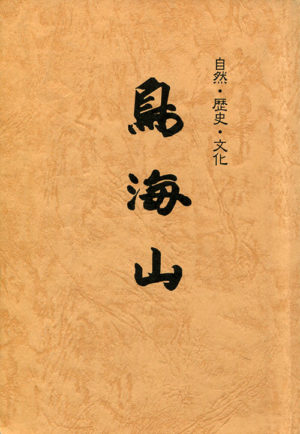 自然・歴史・文化
鳥海山